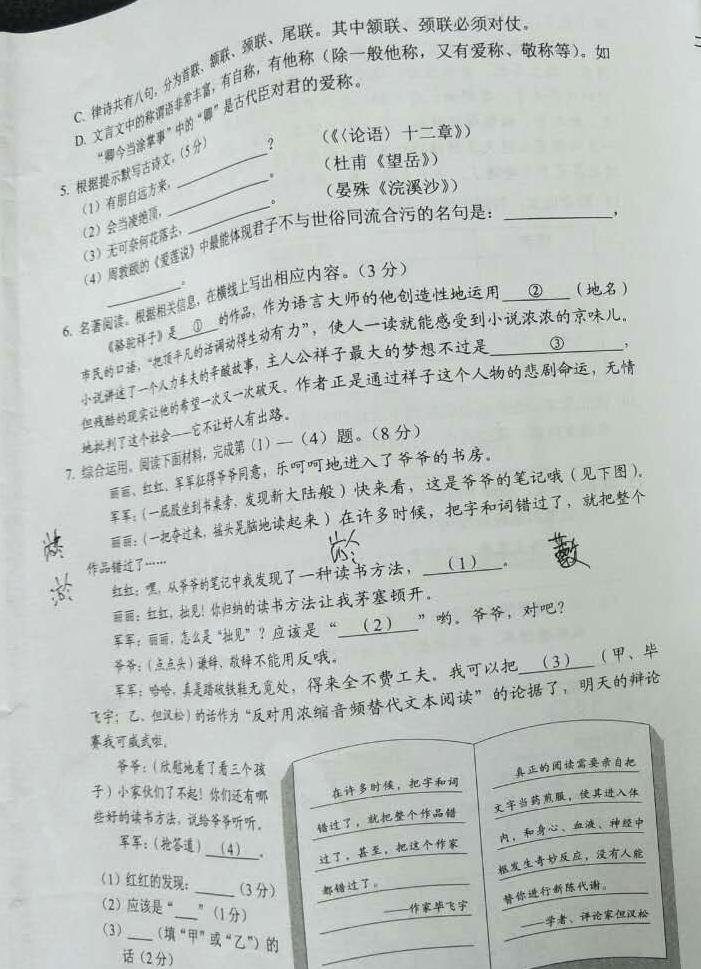 C. 律诗共有八句，分为首联、颔联、颈联、尾联。其中颔联、颈联必须对仗。
D. 文言文中的称谓语非常丰富，有自称，有他称（除一般他称，又有爱称、敬称等）。如
“卿今当涂掌事”中的“卿”是古代臣对君的爱称。
5. 根据提示默写古诗文。（5分）
（1）有朋自远方来，？（《〈论语〉十二章》）
（2）会当凌绝顶，。（杜甫《望岳》）
（3）无可奈何花落去，。（晏殊《浣溪沙》）
（4）周敦颐的《爱莲说》中最能体现君子不与世俗同流合污的名句是：，
。
6. 名著阅读。根据相关信息，在横线上写出相应内容。（3分）
《骆驼祥子》是 ① 的作品，作为语言大师的他创造性地运用 ② （地名）
市民的口语，“把顶平凡的话调动得生动有力”，使人一读就能感受到小说浓浓的京味儿。
小说讲述了一个人力车夫的辛酸故事，主人公祥子最大的梦想不过是 ③ ，
但残酷的现实让他的希望一次又一次破灭。作者正是通过祥子这个人物的悲剧命运，无情
地批判了这个社会——它不让好人有出路。
7. 综合运用。阅读下面材料，完成第（1）—（4）题。（8分）
丽丽、红红、军军征得爷爷同意，乐呵呵地进入了爷爷的书房。
军军：（一屁股坐到书桌旁，发现新大陆般）快来看，这是爷爷的笔记哦（见下图）。
丽丽：（一把夺过来，摇头晃脑地读起来）在许多时候，把字和词错过了，就把整个
作品错过了……
红红：嘿，从爷爷的笔记中我发现了一种读书方法，（1）。
丽丽：红红，拙见！你归纳的读书方法让我茅塞顿开。
军军：丽丽，怎么是“拙见”？应该是“（2）”哟。爷爷，对吧？
爷爷：（点点头）谦辞、敬辞不能用反哦。
军军：哈哈，真是踏破铁鞋无觅处，得来全不费工夫。我可以把（3）（甲、毕
飞宇；乙、但汉松）的话作为“反对用浓缩音频替代文本阅读”的论据了，明天的辩论
赛我可威武啦。
爷爷：（欣慰地看了看三个孩
子）小家伙们了不起！你们还有哪
些好的读书方法，说给爷爷听听。
军军：（抢答道）（4）。
（1）红红的发现：（3分）
（2）应该是“”（1分）
（3）（填“甲”或“乙”）的
话（2分）
在许多时候，把字和词
错过了，就把整个作品错
过了，甚至，把这个作家
都错过了。
——作家毕飞宇
真正的阅读需要亲自把
文字当药煎服，使其进入体
内，和身心、血液、神经中
枢发生奇妙反应，没有人能
替你进行新陈代谢。
——学者、评论家但汉松